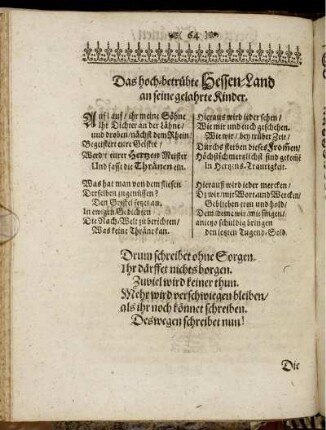 64
Das hoch-betrübte Hessen-Land
an seine gelahrte Kinder.
Auf! auf/ ihr meine Söhne
Ihr Dichter an der Lähne/
und droben/ nächst dem Rhein/
Begeistert eure Geister/
Werdt eurer Hertzen Meister
Und fasst die Thränen ein.
Was hat man von dem
Derselben zugeniessen?
Den Gryffel setzet an.
In ewigen Gedichten
Die Nach-Welt zu berichten/
Was keine Thräne kan.
Hieraus wird jeder sehen/
Wie mir und euch geschehen.
Wie wir/ bey trüber Zeit/
Durchs sterben dieses Grossen/
Höchstschmertzlichst sind
In Hertzens-Traurigkeit.
Hierauß wird jeder mercken/
wir/ mit Wort und Wercken/
Geblieben treu und hold/
Dem/ dem wir/
anitzo schuldig bringen
den letzten Tugend-Sold.
Drum schreibet ohne Sorgen.
Ihr därffet nichts borgen.
Zuviel wird keiner thun.
Mehr wird verschwiegen bleiben/
als ihr noch könnet schreiben.
Deswegen schreibet nun!
Die